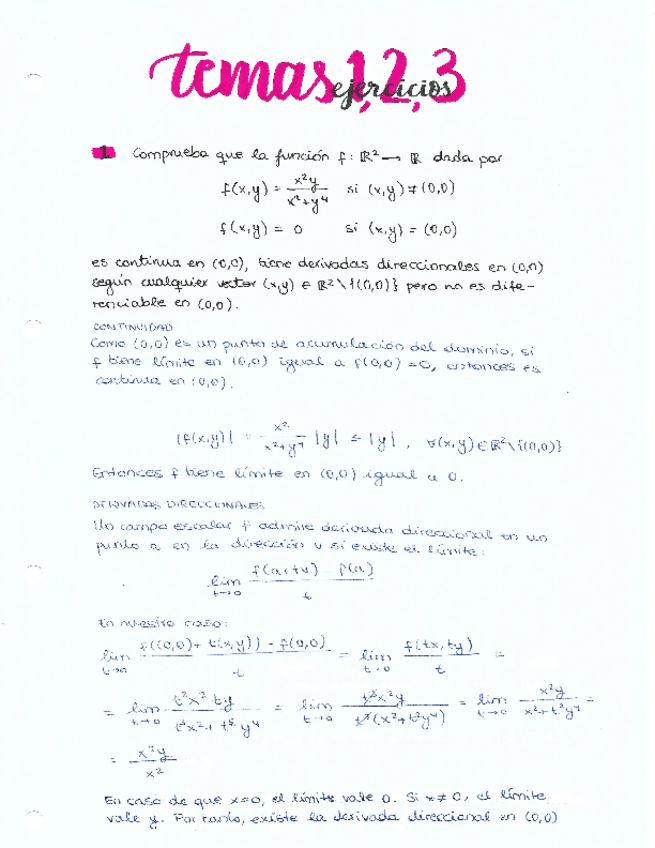 temas 1, 2, 3
ejercicios
1 Comprueba que la función f: ℝ² → ℝ dada por
f(x,y) = x²y / (x²+y⁴) si (x,y) ≠ (0,0)
f(x,y) = 0 si (x,y) = (0,0)
es continua en (0,0), tiene derivadas direccionales en (0,0)
según cualquier vector (x,y) ∈ ℝ²\{(0,0)} pero no es dife-
renciable en (0,0).
CONTINUIDAD
Como (0,0) es un punto de acumulación del dominio, si
f tiene límite en (0,0) igual a f(0,0) = 0, entonces es
continua en (0,0).
|f(x,y)| = x² / (x²+y⁴) |y| ≤ |y|, ∀(x,y) ∈ ℝ²\{(0,0)}
Entonces f tiene límite en (0,0) igual a 0.
DERIVADAS DIRECCIONALES
Un campo escalar f admite derivada direccional en un
punto a en la dirección v si existe el límite:
lim t→0 (f(a+tv) - f(a)) / t
En nuestro caso:
lim t→0 (f((0,0) + t(x,y)) - f(0,0)) / t = lim t→0 f(tx,ty) / t =
= lim t→0 t²x² ty / (t³x² + t⁵y⁴) = lim t→0 t³x²y / (t³(x²+t²y⁴)) = lim t→0 x²y / (x²+t²y⁴) =
= x²y / x²
En caso de que x=0, el límite vale 0. Si x≠0, el límite
vale y. Por tanto, existe la derivada direccional en (0,0)